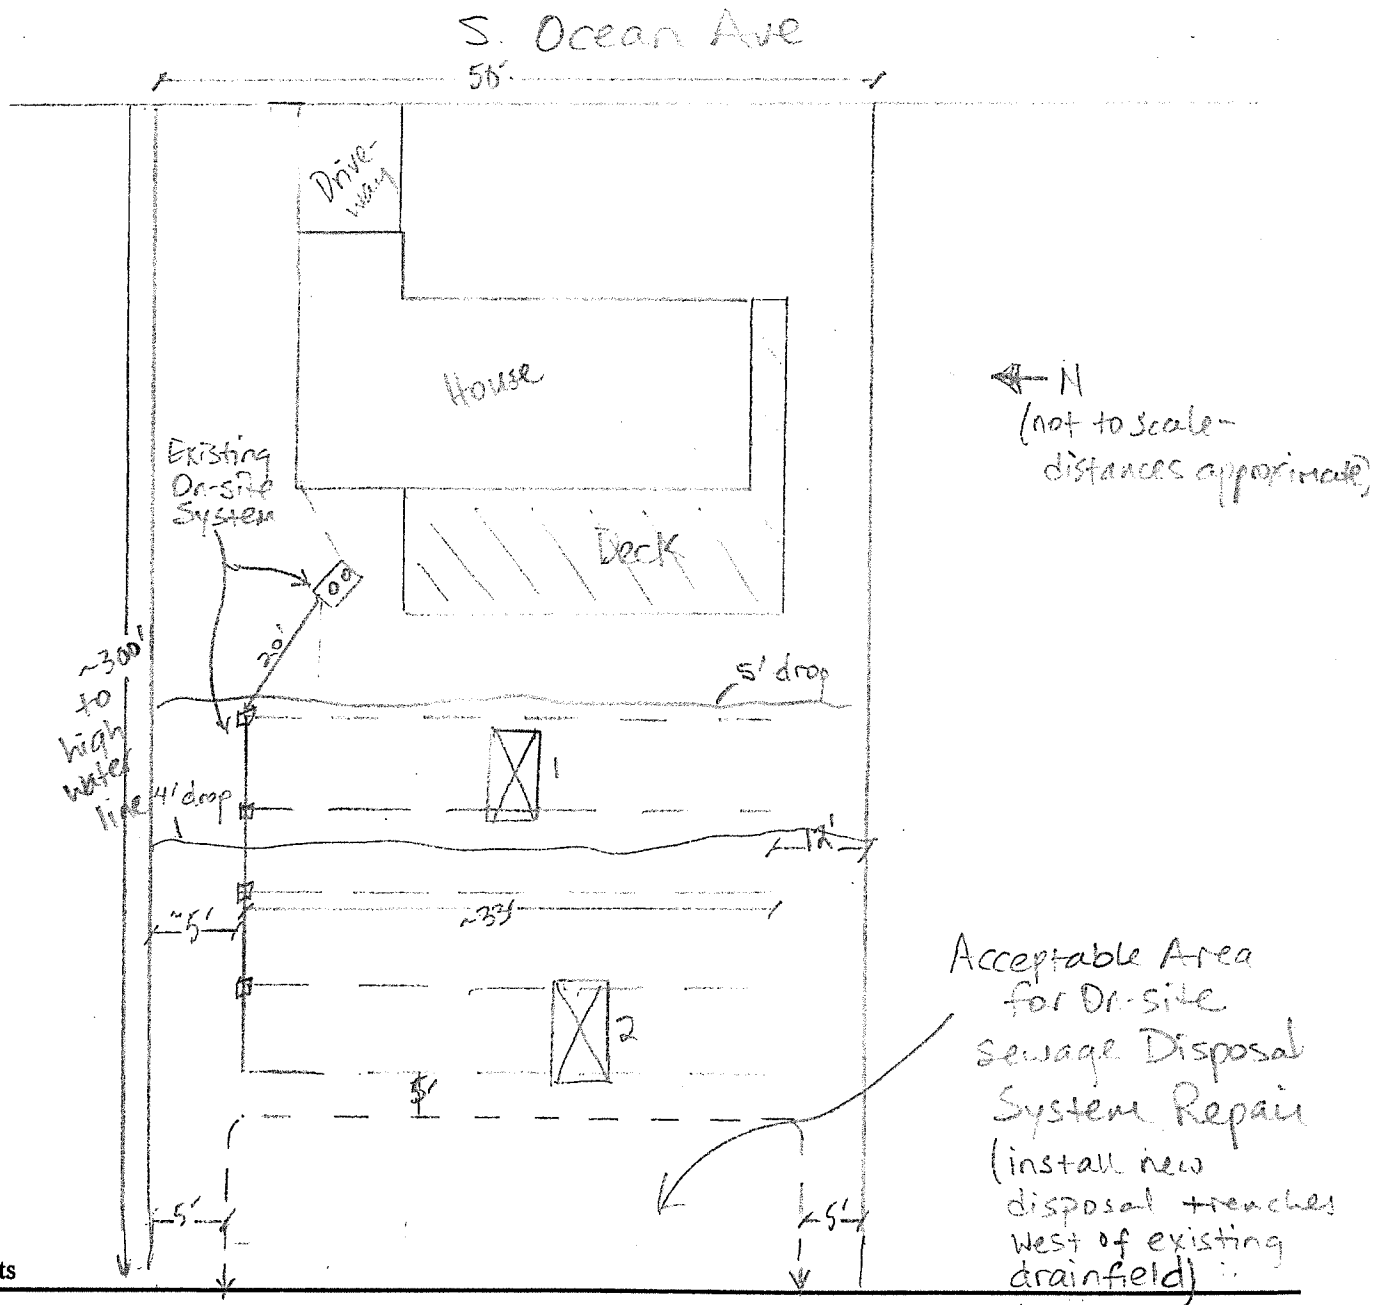 S. Ocean Ave
50'
Drive-
way
House
N
(not to scale-
distances approximate)
Existing
On-site
System
Deck
20'
~300'
to
high
water
line
5' drop
1
4' drop
12'
~5'
~33'
2
5'
Acceptable Area
for On-site
Sewage Disposal
System Repair
(install new
disposal trenches
west of existing
drainfield)
5'
5'
ts